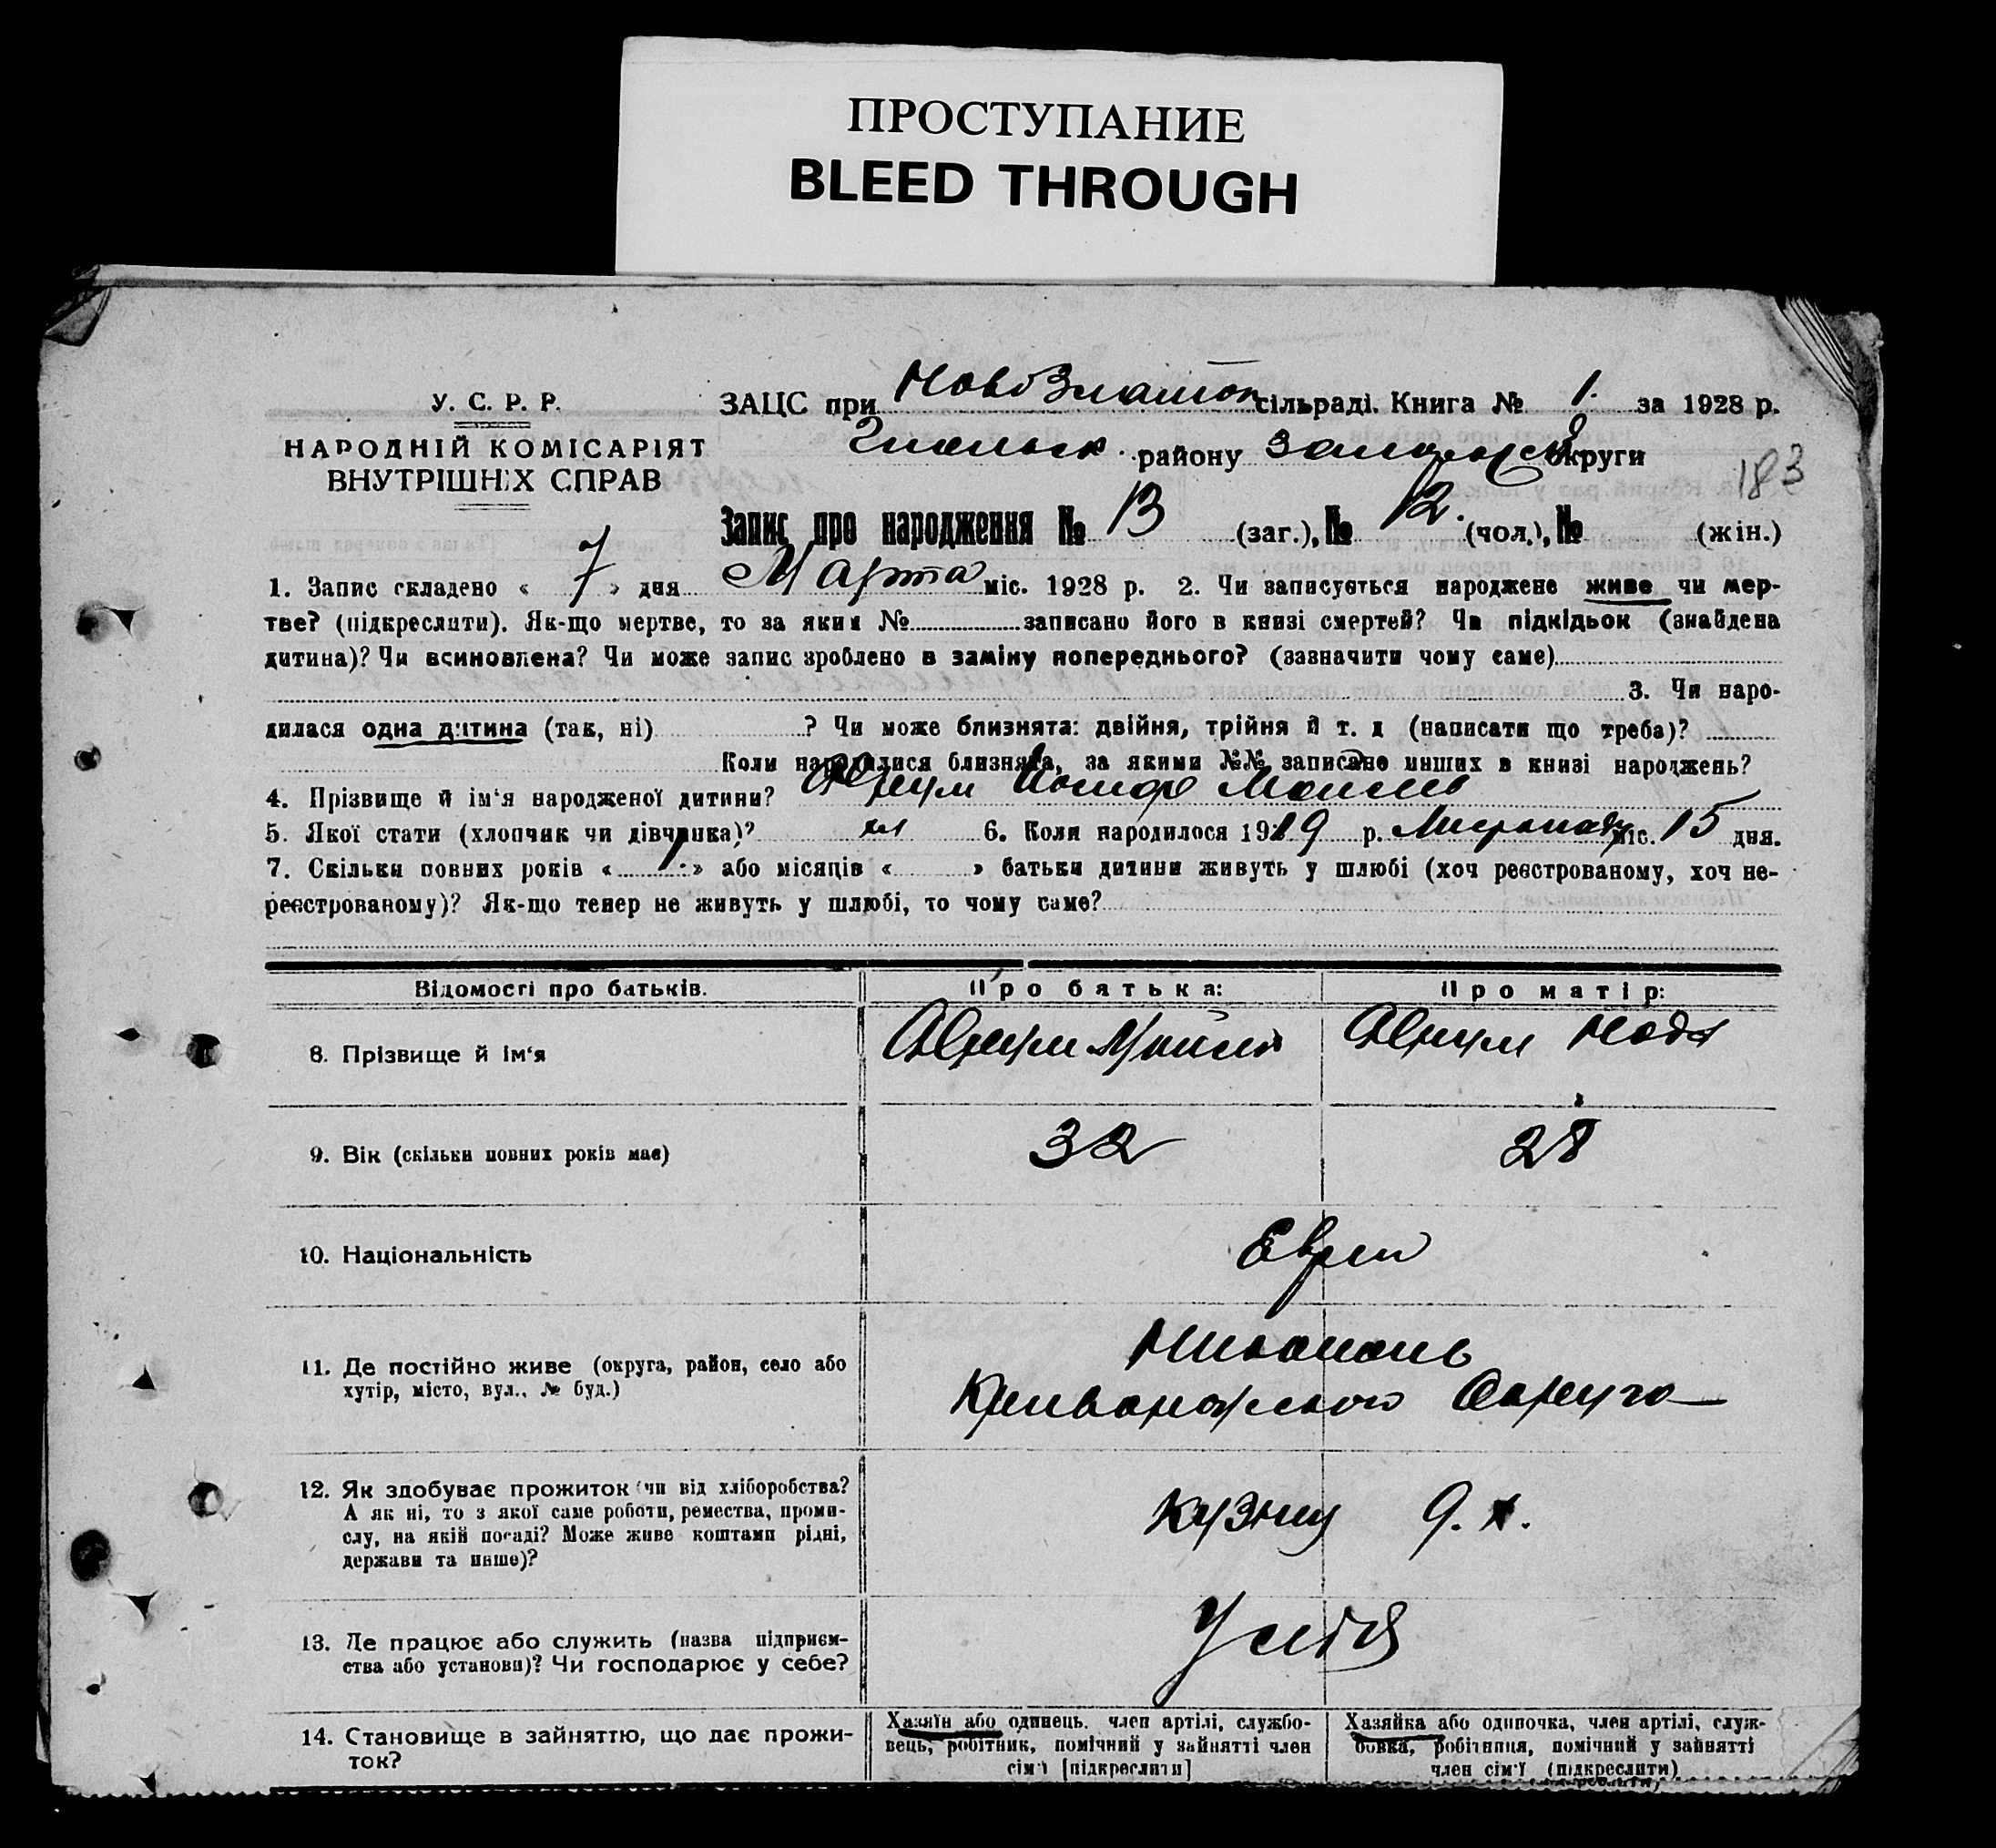 ПРОСТУПАНИЕ
BLEED THROUGH
У. С. Р. Р.
НАРОДНІЙ КОМІСАРІЯТ
ВНУТРІШНІХ СПРАВ
ЗАЦС при сільраді. Книга № 1. за 1928 р.
району округи
183
Запис про народження № 13 (заг.), № 12. (чол.), № (жін.)
1. Запис складено « 7 » дня Марта міс. 1928 р. 2. Чи записується народжене живе чи мер-
тве? (підкреслити). Як-що мертве, то за яким № записано його в книзі смертей? Чи підкідьок (знайдена
дитина)? Чи всиновлена? Чи може запис зроблено в заміну попереднього? (зазначити чому саме)
3. Чи наро-
дилася одна дитина (так, ні) ? Чи може близнята: двійня, трійня й т. д (написати що треба)?
Коли народилися близнята, за якими №№ записано инших в книзі народжень?
4. Прізвище й ім'я народженої дитини?
5. Якої стати (хлопчик чи дівчинка)? 6. Коли народилося 1919 р. міс. 15 дня.
7. Скільки повних років « » або місяців « » батьки дитини живуть у шлюбі (хоч реєстрованому, хоч не-
реєстрованому)? Як-що тепер не живуть у шлюбі, то чому саме?
Відомості про батьків. Про батька: Про матір:
8. Прізвище й ім'я
9. Вік (скільки повних років має) 32 28
10. Національність Еврей
11. Де постійно живе (округа, район, село або
хутір, місто, вул., № буд.)
Никополь
12. Як здобуває прожиток (чи від хліборобства?
А як ні, то з якої саме роботи, ремества, проми-
слу, на якій посаді? Може живе коштами рідні,
держави та инше)?
13. Де працює або служить (назва підприєм-
ства або установи)? Чи господарює у себе?
14. Становище в зайняттю, що дає прожи-
ток?
Хазяїн або одинець, член артілі, службо-
вець, робітник, помічний у зайнятті член
сім'ї [підкреслити]
Хазяйка або одиночка, член артілі, служ-
бовка, робітниця, помічний у зайнятті
член сім'ї (підкреслити)